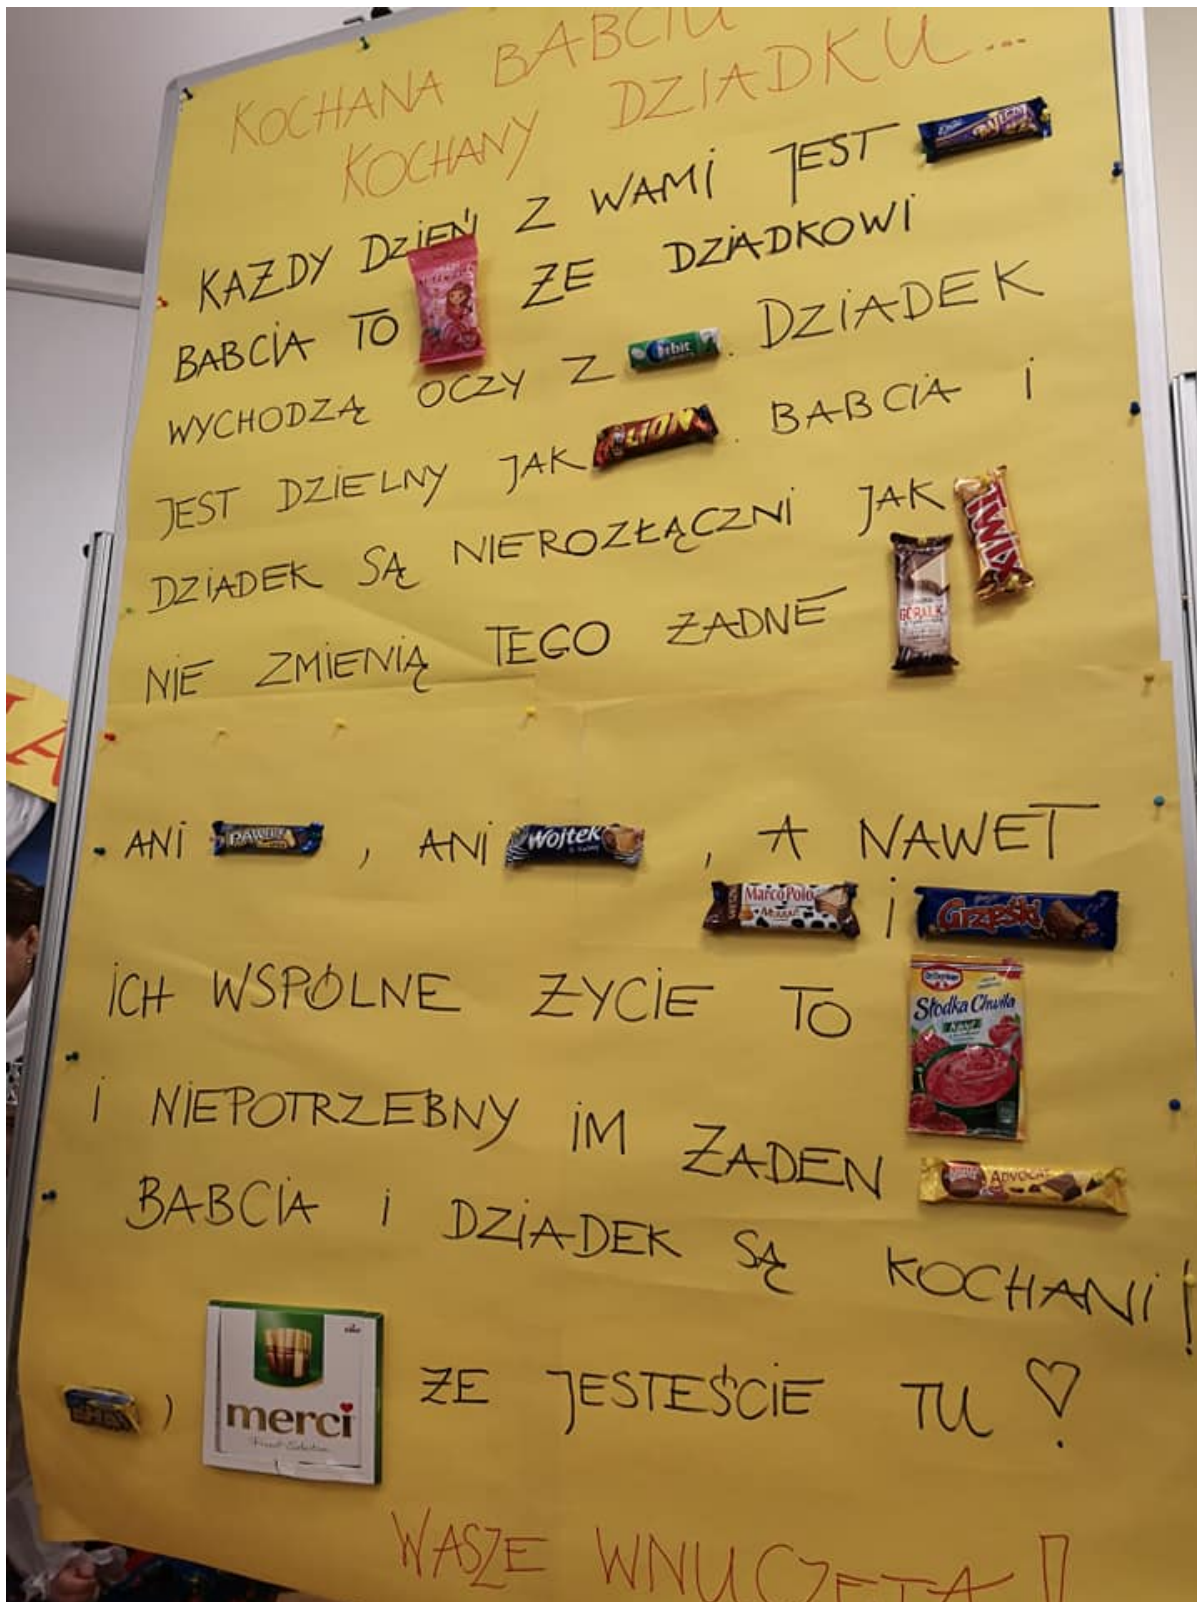 KOCHANA BABCIU
KOCHANY DZIADKU...
KAŻDY DZIEŃ Z WAMI JEST
BABCIA TO ŻE DZIADKOWI
WYCHODZĄ OCZY Z Orbit. DZIADEK
JEST DZIELNY JAK LION. BABCIA I
DZIADEK SĄ NIEROZŁĄCZNI JAK TWIX
NIE ZMIENIĄ TEGO ŻADNE GÓRALKI
ANI PAWEŁEK, ANI Wojtek, A NAWET
MarcoPolo i Grześki
ICH WSPÓLNE ŻYCIE TO Dr.Oetker Słodka Chwila Kisiel
I NIEPOTRZEBNY IM ŻADEN ADVOCAT
BABCIA I DZIADEK SĄ KOCHANI!
, merci ŻE JESTEŚCIE TU ♡!
WASZE WNUCZĘTA!!